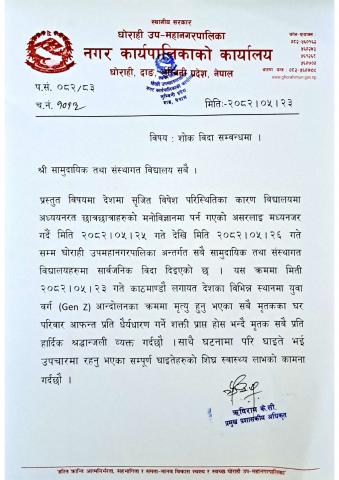 स्थानीय सरकार
घोराही उप-महानगरपालिका
नगर कार्यपालिकाको कार्यालय
घोराही, दाङ, लुम्बिनी प्रदेश, नेपाल
प.सं. ०८२/८३
च.नं. १०१२
मिति:-२०८२।०५।२३
विषय : शोक विदा सम्बन्धमा ।
श्री सामुदायिक तथा संस्थागत विद्यालय सबै ।
प्रस्तुत विषयमा देशमा सृजित विषेश परिस्थितिका कारण विद्यालयमा
अध्ययनरत छात्रछात्राहरुको मनोविज्ञानमा पर्न गएको असरलाई मध्यनजर
गर्दै मिति २०८२।०५।२५ गते देखि मिति २०८२।०५।२६ गते
सम्म घोराही उपमहानगरपालिका अन्तर्गत सबै सामुदायिक तथा संस्थागत
विद्यालयहरुमा सार्वजनिक विदा दिइएको छ । यस क्रममा मिती
२०८२।०५।२३ गते काठमाण्डौ लगायत देशका विभिन्न स्थानमा युवा
वर्ग (Gen Z) आन्दोलनका क्रममा मृत्यु हुनु भएका सबै मृतकका घर
परिवार आफन्त प्रति धैर्यधारण गर्ने शक्ती प्राप्त होस भन्दै मृतक सबै प्रति
हार्दिक श्रद्धान्जली व्यक्त गर्दछौं ।साथै घटनामा परि घाइते भई
उपचारमा रहनु भएका सम्पूर्ण घाइतेहरुको शिघ्र स्वास्थ्य लाभको कामना
गर्दछौं ।
ऋषिराम के.सी.
प्रमुख प्रशासकीय अधिकृत
"हरित क्रान्ति आत्मनिर्भरता, सहभागिता र समता-मानव विकास स्वस्थ र स्वच्छ घोराही उप-महानगरपालिका"